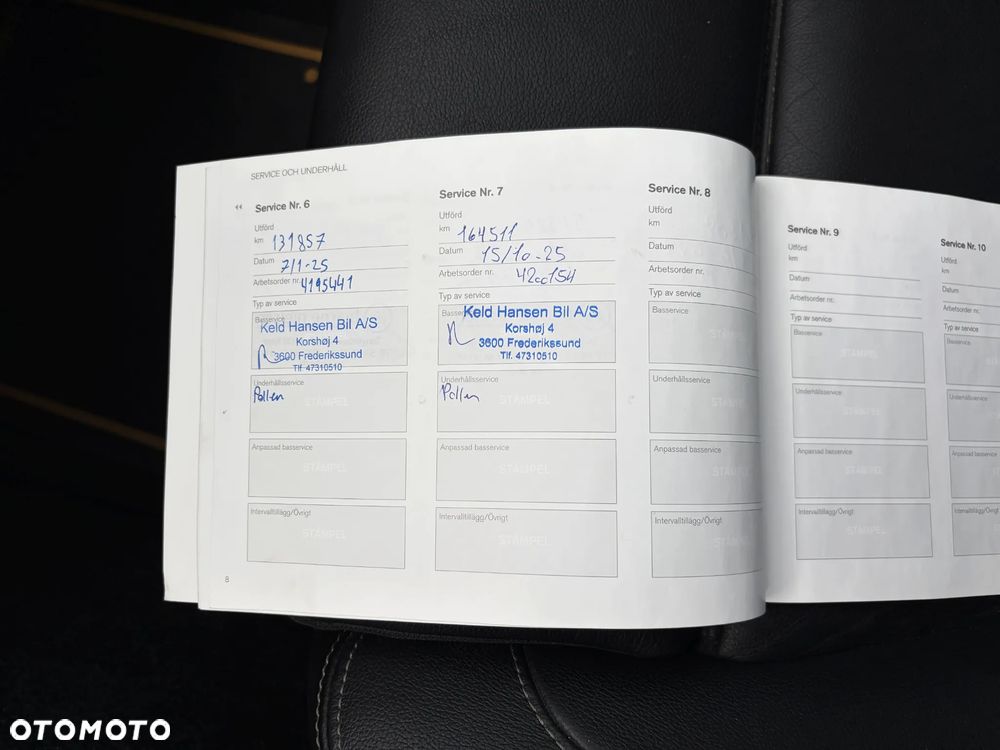 SERVICE OCH UNDERHÅLL
Service Nr. 6
Utförd
km 131857
Datum 7/1-25
Arbetsorder nr. 4195441
Typ av service
Basservice
Keld Hansen Bil A/S
Korshøj 4
3600 Frederikssund
Tlf. 47310510
Underhållsservice
Pollen
STÄMPEL
Anpassad basservice
STÄMPEL
Intervalltillägg/Övrigt
STÄMPEL
8
Service Nr. 7
Utförd
km 164511
Datum 15/10-25
Arbetsorder nr.
Typ av service
Keld Hansen Bil A/S
Korshøj 4
3600 Frederikssund
Tlf. 47310510
Underhållsservice
Pollen
STÄMPEL
Anpassad basservice
STÄMPEL
Intervalltillägg/Övrigt
STÄMPEL
Service Nr. 8
Utförd
km
Datum
Arbetsorder nr.
Typ av service
Basservice
Underhållsservice
Anpassad basservice
Intervalltillägg/Övrigt
Service Nr. 9
Utförd
km
Datum
Arbetsorder nr.
Typ av service
Basservice
STÄMPEL
Underhållsservice
STÄMPEL
Anpassad basservice
STÄMPEL
Intervalltillägg/Övrigt
STÄMPEL
Service Nr. 10
Utförd
km
Datum
Arbetsorder nr.
Typ av service
Basservice
Underhållsservice
Anpassad basservice
Intervalltillägg/Övrigt
OTOMOTO